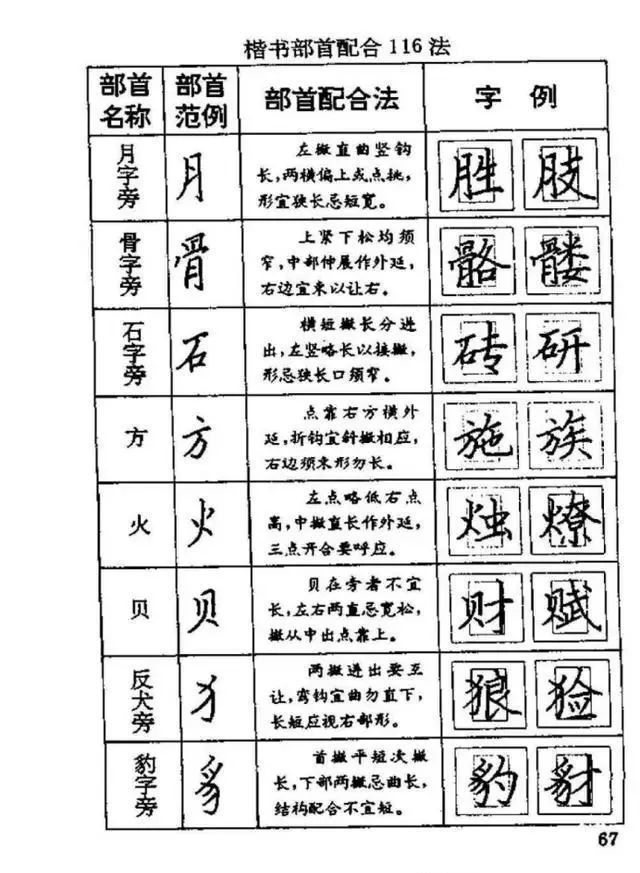 楷书部首配合116法
部首名称 部首范例 部首配合法 字 例
月字旁 月 左撇直曲竖钩
长，两横偏上或点挑，
形宜狭长忌短宽。 胜 肢
骨字旁 骨 上紧下松均须
窄，中部伸展作外延，
右边宜束以让右。 骼 髅
石字旁 石 横短撇长分进
出，左竖略长以接撇，
形忌狭长口须窄。 砖 研
方 方 点靠右方横外
延，折钩宜斜撇相应，
右边须束形勿长。 施 族
火 火 左点略低右点
高，中撇直长作外延，
三点开合要呼应。 烛 燎
贝 贝 贝在旁者不宜
长，左右两直忌宽松，
撇从中出点靠上。 财 赋
反犬旁 犭 两撇进出要互
让，弯钩宜曲勿直下，
长短应视右部形。 狼 猃
豹字旁 豸 首撇平短次撇
长，下部两撇忌曲长，
结构配合不宜短。 豹 豺
67